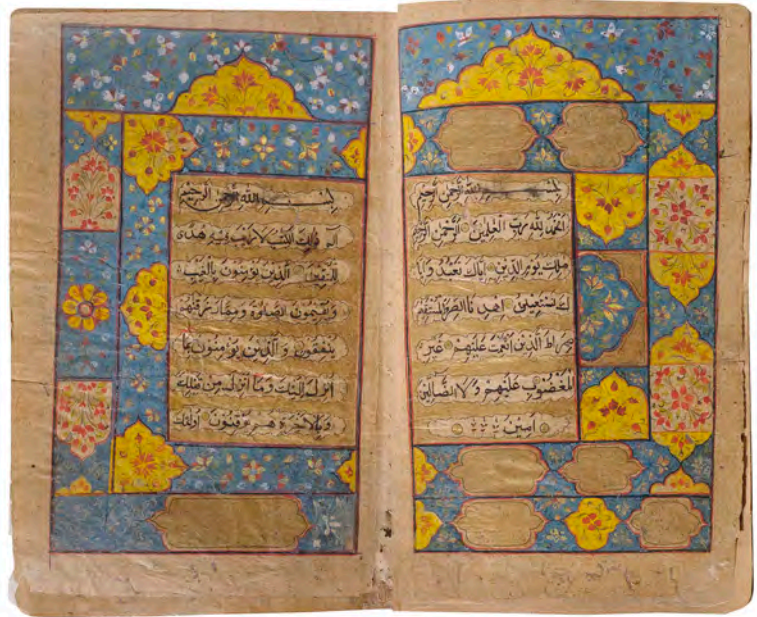 بسم الله الرحمن الرحيم
الحمد لله رب العلمين الرحمن الرحيم
ملك يوم الدين اياك نعبد و ايا
ك نستعين اهدنا الصراط المستقيم
صراط الذين انعمت عليهم غير
المغضوب عليهم ولا الضالين
امين
بسم الله الرحمن الرحيم
الم ذلك الكتب لا ريب فيه هدى
للمتقين الذين يؤمنون بالغيب
و يقيمون الصلوة ومما رزقنهم
ينفقون و الذين يؤمنون بما
انزل اليك وما انزل من قبلك
وبالاخرة هم يوقنون اولئك